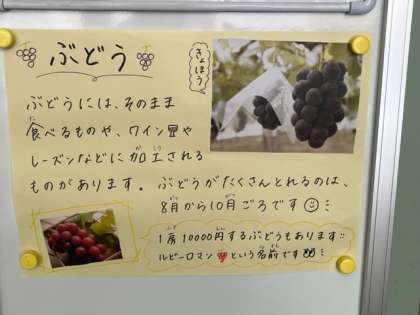 ぶどう
きょほう
ぶどうには、そのまま
食べるものや、ワインや
レーズンなどに加工される
ものがあります。ぶどうがたくさんとれるのは、
8月から10月ごろです
1房10000円するぶどうもあります!!
ルビーロマンという名前です